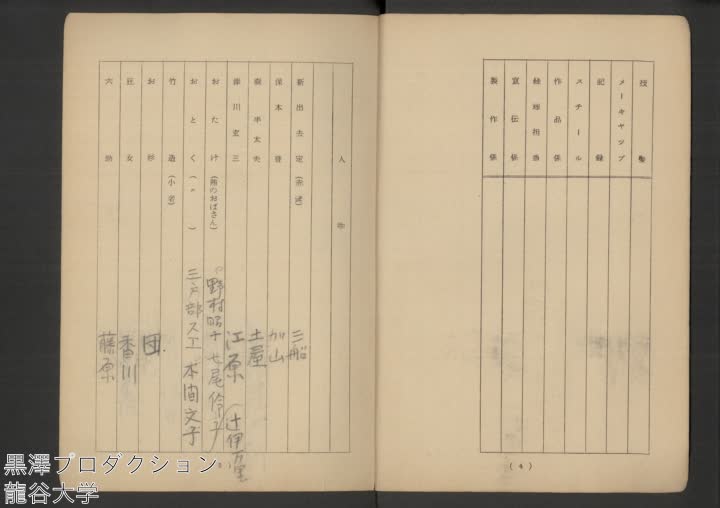 技髪
メーキヤツプ
記録
スチール
作品係
経理担当
宣伝係
製作係
(4)
人物
新出去定(赤髯) 三船
保本登 加山
森半太夫 土屋
津川玄三 江原(辻伊万里)
おたけ(賄のおばさん) 野村昭子 七尾伶子
おとく(〃) 三戸部スエ 本間文子
竹造(小者)
お杉 団
狂女 香川
六助 藤原
黒澤プロダクション
龍谷大学